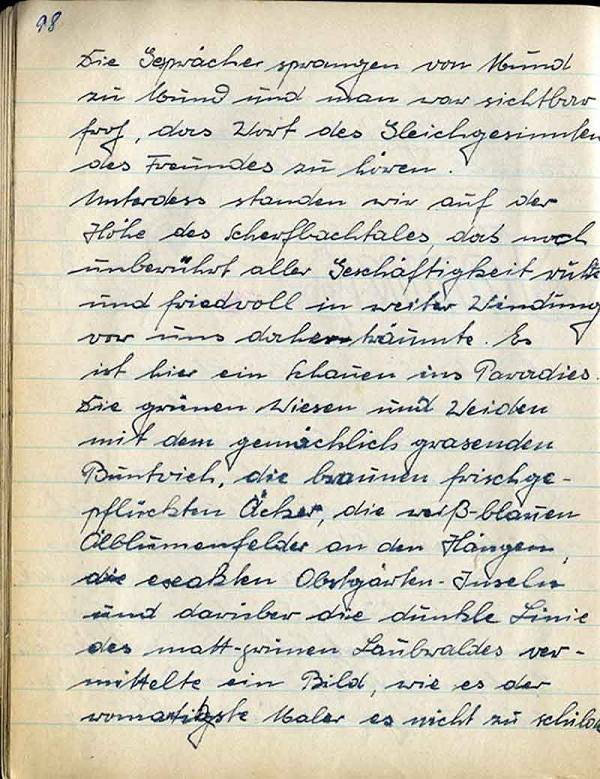 98
Die Gespräche sprangen von Mund
zu Mund und man war sichtbar
froh, das Wort des Gleichgesinnten
des Freundes zu hören.
Unterdess standen wir auf der
Höhe des Scherfbachtales, das noch
unberührt aller Geschäftigkeit ruhte
und friedvoll in weiter Windung
vor uns daher träumte. Es
ist hier ein Schauen ins Paradies.
Die grünen Wiesen und Weiden
mit dem gemächlich grasenden
Buntvieh, die braunen frischge-
pflückten Äcker, die weiß-blauen
Ölblumenfelder an den Hängen,
die exakten Obstgärten-Inseln
und darüber die dunkle Linie
des matt-grünen Laubwaldes ver-
mittelte ein Bild, wie es der
romantigste Maler es nicht zu schild